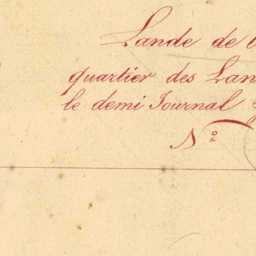 Lande de
quartier des Lan
le demi Journal
N°